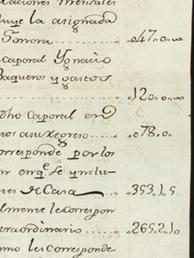 raciones Mensales
tuye la asignada
Sonora ... 0,,47.,0.,,
Caporal Ygnacio
Baqueros y gastos
... 0,,12.,0.,,
dho Caporal en
... a su regreso ... 0,,78.,0.
orresponde por los
en q.e se ynclu-
de Casa ... 353.,1.,5
lmente le correspon
traordinario ... 265.,2.,10
mo le corresponde